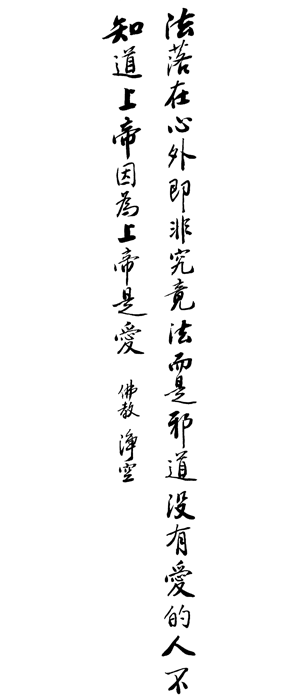 法落在心外即非究竟法而是邪道没有愛的人不
知道上帝因為上帝是愛 佛教 淨空